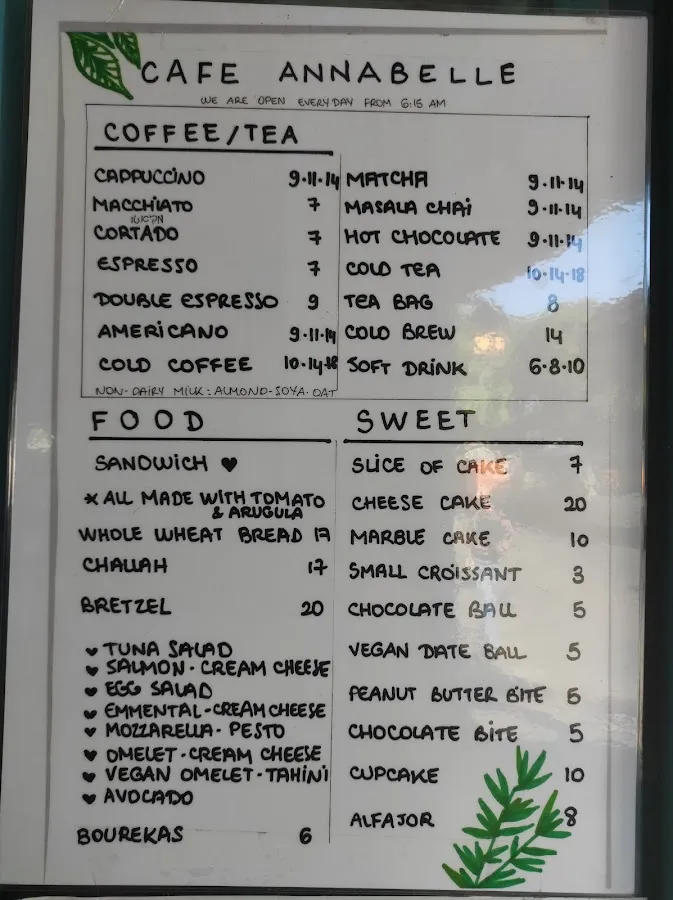 CAFE ANNABELLE
WE ARE OPEN EVERYDAY FROM 6:15 AM
COFFEE/TEA
CAPPUCCINO 9·11·14
MACCHIATO 7
CORTADO 7
ESPRESSO 7
DOUBLE ESPRESSO 9
AMERICANO 9·11·14
COLD COFFEE 10·14·18
NON-DAIRY MILK: ALMOND-SOYA-OAT
MATCHA 9·11·14
MASALA CHAI 9·11·14
HOT CHOCOLATE 9·11·14
COLD TEA 10·14·18
TEA BAG 8
COLD BREW 14
SOFT DRINK 6·8·10
FOOD
SANDWICH ♥
* ALL MADE WITH TOMATO
& ARUGULA
WHOLE WHEAT BREAD 17
CHALLAH 17
BRETZEL 20
♥ TUNA SALAD
♥ SALMON-CREAM CHEESE
♥ EGG SALAD
♥ EMMENTAL-CREAM CHEESE
♥ MOZZARELLA-PESTO
♥ OMELET-CREAM CHEESE
♥ VEGAN OMELET-TAHINI
♥ AVOCADO
BOUREKAS 6
SWEET
SLICE OF CAKE 7
CHEESE CAKE 20
MARBLE CAKE 10
SMALL CROISSANT 3
CHOCOLATE BALL 5
VEGAN DATE BALL 5
PEANUT BUTTER BITE 5
CHOCOLATE BITE 5
CUPCAKE 10
ALFAJOR 8